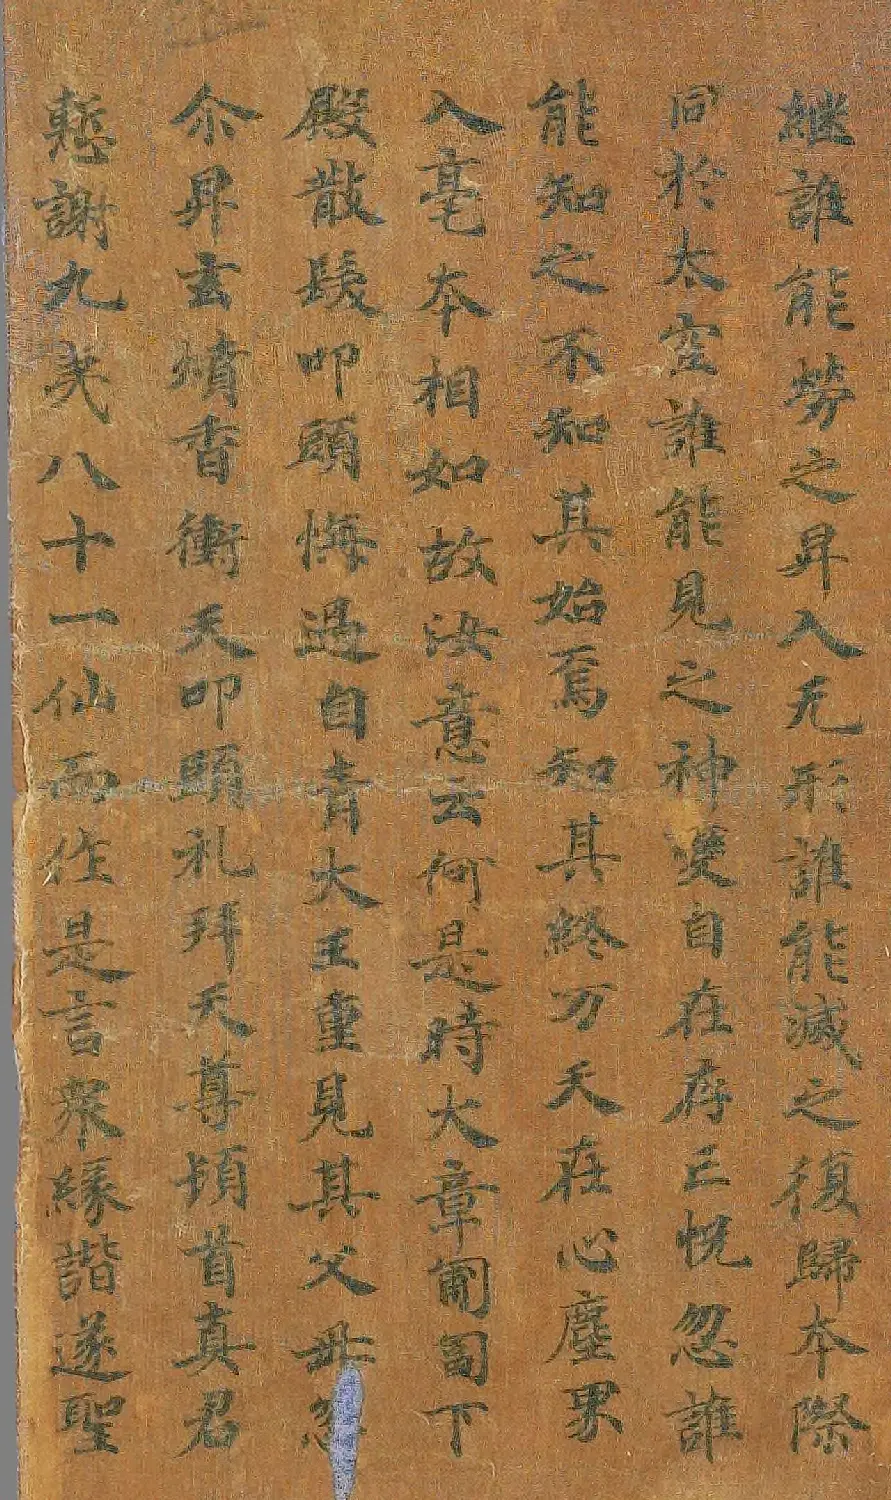 継誰能勞之昇入无形誰能滅之復歸本際
同於太空誰能見之神變自在存亡恍忽誰
能知之不知其始焉知其終万天在心塵果
入毫本相如故汝意云何是時大章匍匐下
殿散髮叩頭悔過自責大王重見其父母忽
尒昇玄燌香衝天叩頭礼拜天尊頓首真君
慙謝九炁八十一仙而作是言眾緣諧遂聖